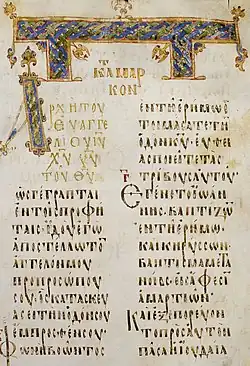 ΤΟ
ΚΑΤΑ ΜΑΡ
ΚΟΝ
ΑΡΧΗ ΤΟΥ
ΕΥΑΓΓΕ
ΛΙΟΥ ΙΥ
ΧΥ ΥΥ
ΤΟΥ ΘΥ
ΩϹ ΓΕΓΡΑΠΤΑΙ
ΕΝ ΤΟΙϹ ΠΡΟΦΗ
ΤΑΙϹ ΙΔΟΥ ΕΓΩ
ΑΠΟϹΤΕΛΛΩ ΤΟΝ
ΑΓΓΕΛΟΝ ΜΟΥ
ΠΡΟ ΠΡΟϹΩΠΟΥ
ϹΟΥ ΟϹ ΚΑΤΑϹΚΕΥ
ΑϹΕΙ ΤΗΝ ΟΔΟΝ ϹΟΥ
ΕΜΠΡΟϹΘΕΝ ϹΟΥ
ΦΩΝΗ ΒΟΩΝΤΟϹ
ΕΝ ΤΗ ΕΡΗΜΩ ΕΤ
ΟΙΜΑϹΑΤΕ ΤΗΝ
ΟΔΟΝ ΚΥ ΕΥΘΕΙ
ΑϹ ΠΟΙΕΙΤΕ ΤΑϹ
ΤΡΙΒΟΥϹ ΑΥΤΟΥ
ΕΓΕΝΕΤΟ ΙΩΑΝ
ΝΗϹ ΒΑΠΤΙΖΩΝ
ΕΝ ΤΗ ΕΡΗΜΩ
ΚΑΙ ΚΗΡΥϹϹΩΝ
ΒΑΠΤΙϹΜΑ ΜΕΤΑ
ΝΟΙΑϹ ΕΙϹ ΑΦΕϹΙΝ
ΑΜΑΡΤΙΩΝ
ΚΑΙ ΕΞΕΠΟΡΕΥΟΝ
ΤΟ ΠΡΟϹ ΑΥΤΟΝ
ΠΑϹΑ Η ΙΟΥΔΑΙΑ